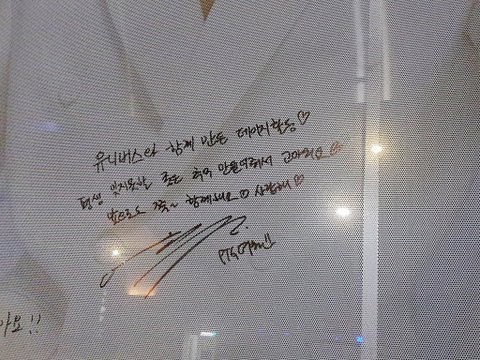 유니버스와 함께 만든 데이지활동♡
평생 잊지못할 좋은 추억 만들어줘서 고마워요♡
앞으로도 쭉~ 함께해요♡ 사랑해♡
PTG
아요!!